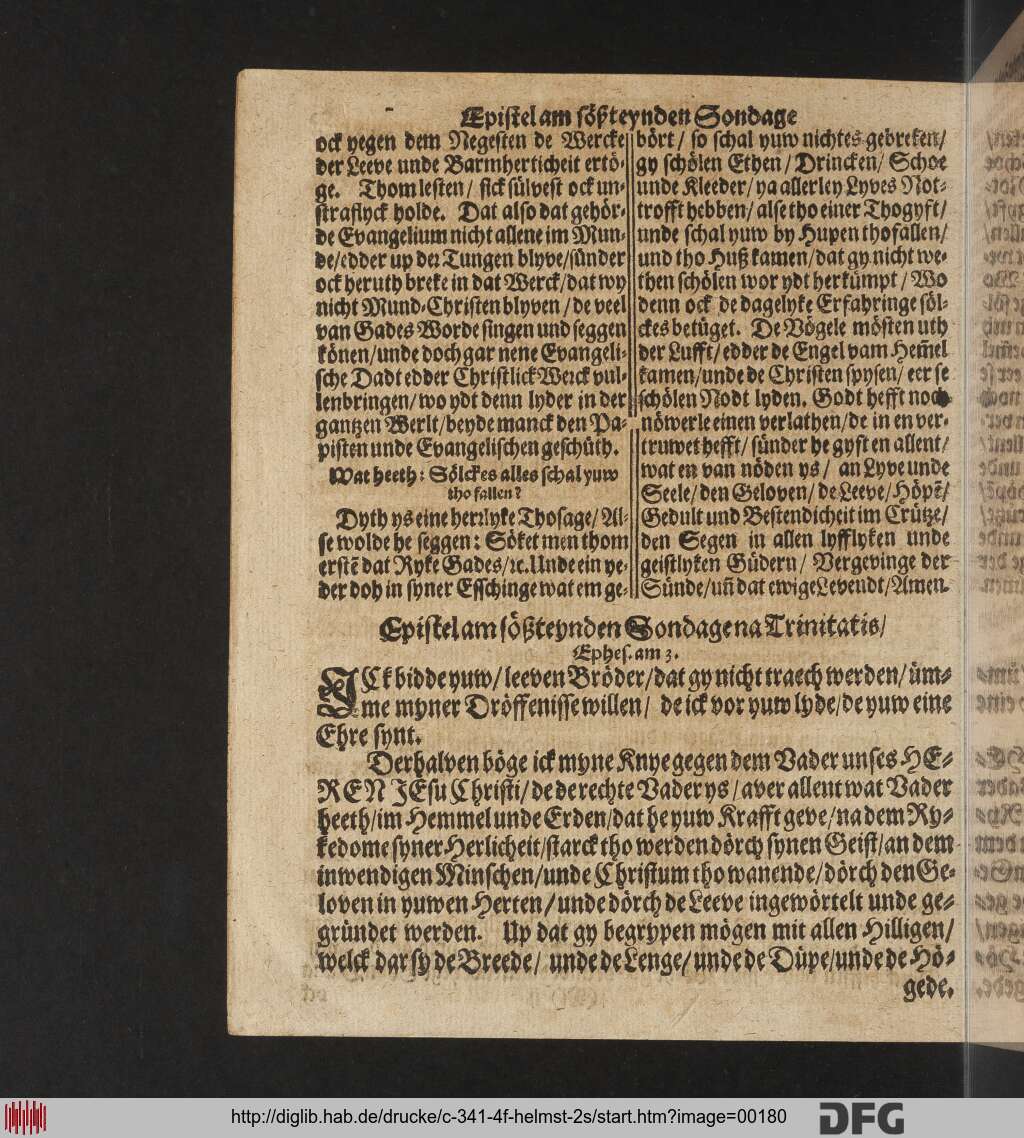 Epistel am sößteynden Sondage
ock yegen dem Negesten de Wercke
der Leeve unde Barmherticheit ertö-
ge. Thom lesten / sick sülvest ock un-
straflyck holde. Dat also dat gehör-
de Evangelium nicht allene im Mun-
de / edder up der Tungen blyve / sünder
ock heruth breke in dat Werck / dat wy
nicht Mund-Christen blyven / de veel
van Gades Worde singen und seggen
könen / unde doch gar nene Evangeli-
sche Dadt edder Christlick Werck vul-
lenbringen / wo ydt denn lyder in der
gantzen Werlt / beyde manck den Pa-
pisten unde Evangelischen geschüth.
Wat heeth: Sölckes alles schal yuw
tho fallen?
Dyth ys eine herrlyke Thosage / Al-
se wolde he seggen: Söket men thom
erstē dat Ryke Gades / ꝛc. Unde ein ye-
der doh in syner Esschinge wat em ge-
bört / so schal yuw nichtes gebreken /
gy schölen Ethen / Drincken / Schoe
unde Kleeder / ya allerley Lyves Not-
trofft hebben / alse tho einer Thogyft /
unde schal yuw by Hupen thofallen /
und tho Huß kamen / dat gy nicht we-
then schölen wor ydt herkümpt / Wo
denn ock de dagelyke Erfahringe söl-
ckes betüget. De Vögele mösten uth
der Lufft / edder de Engel vam Hem̄el
kamen / unde de Christen spysen / eer se
schölen Nodt lyden. Godt hefft noch
nöwerle einen verlathen / de in en ver-
truwet hefft / sünder he gyft en allent /
wat en van nöden ys / an Lyve unde
Seele / den Geloven / de Leeve / Höpē /
Gedult und Bestendicheit im Crütze /
den Segen in allen lyfflyken unde
geistlyken Güdern / Vergevinge der
Sünde / un̄ dat ewige Levendt / Amen.
Epistel am sößteynden Sondage na Trinitatis /
Ephes. am 3.
ICk bidde yuw / leeven Bröder / dat gy nicht traech werden / üm-
me myner Dröffenisse willen / de ick vor yuw lyde / de yuw eine
Ehre synt.
Derhalven böge ick myne Knye gegen dem Vader unses HE-
REN JEsu Christi / de de rechte Vader ys / aver allent wat Vader
heeth / im Hemmel unde Erden / dat he yuw Krafft geve / na dem Ry-
kedome syner Herlicheit / starck tho werden dörch synen Geist / an dem
inwendigen Minschen / unde Christum tho wanende / dörch den Ge-
loven in yuwen Herten / unde dörch de Leeve ingewörtelt unde ge-
gründet werden. Up dat gy begrypen mögen mit allen Hilligen /
welck dar sy de Breede / unde de Lenge / unde de Düpe / unde de Hö-
gede.
http://diglib.hab.de/drucke/c-341-4f-helmst-2s/start.htm?image=00180
DFG